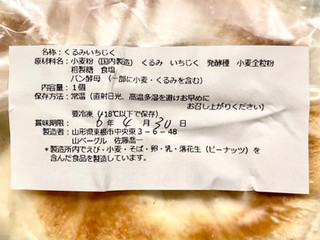 名称：くるみいちじく
原材料名：小麦粉（国内製造） くるみ いちじく 発酵種 小麦全粒粉
粗製糖 食塩
パン酵母 （一部に小麦・くるみを含む）
内容量：1個
保存方法：常温（直射日光、高温多湿を避けお早めに
お召し上がりください）
要冷凍（-18℃以下で保存）
賞味期限： 6 年 4 月 30 日
製造者：山形県東根市中央東3－6－48
山ベーグル 佐藤亮一
＊製造所内でえび・小麦・そば・卵・乳・落花生（ピーナッツ）を
含んだ食品を製造しています。